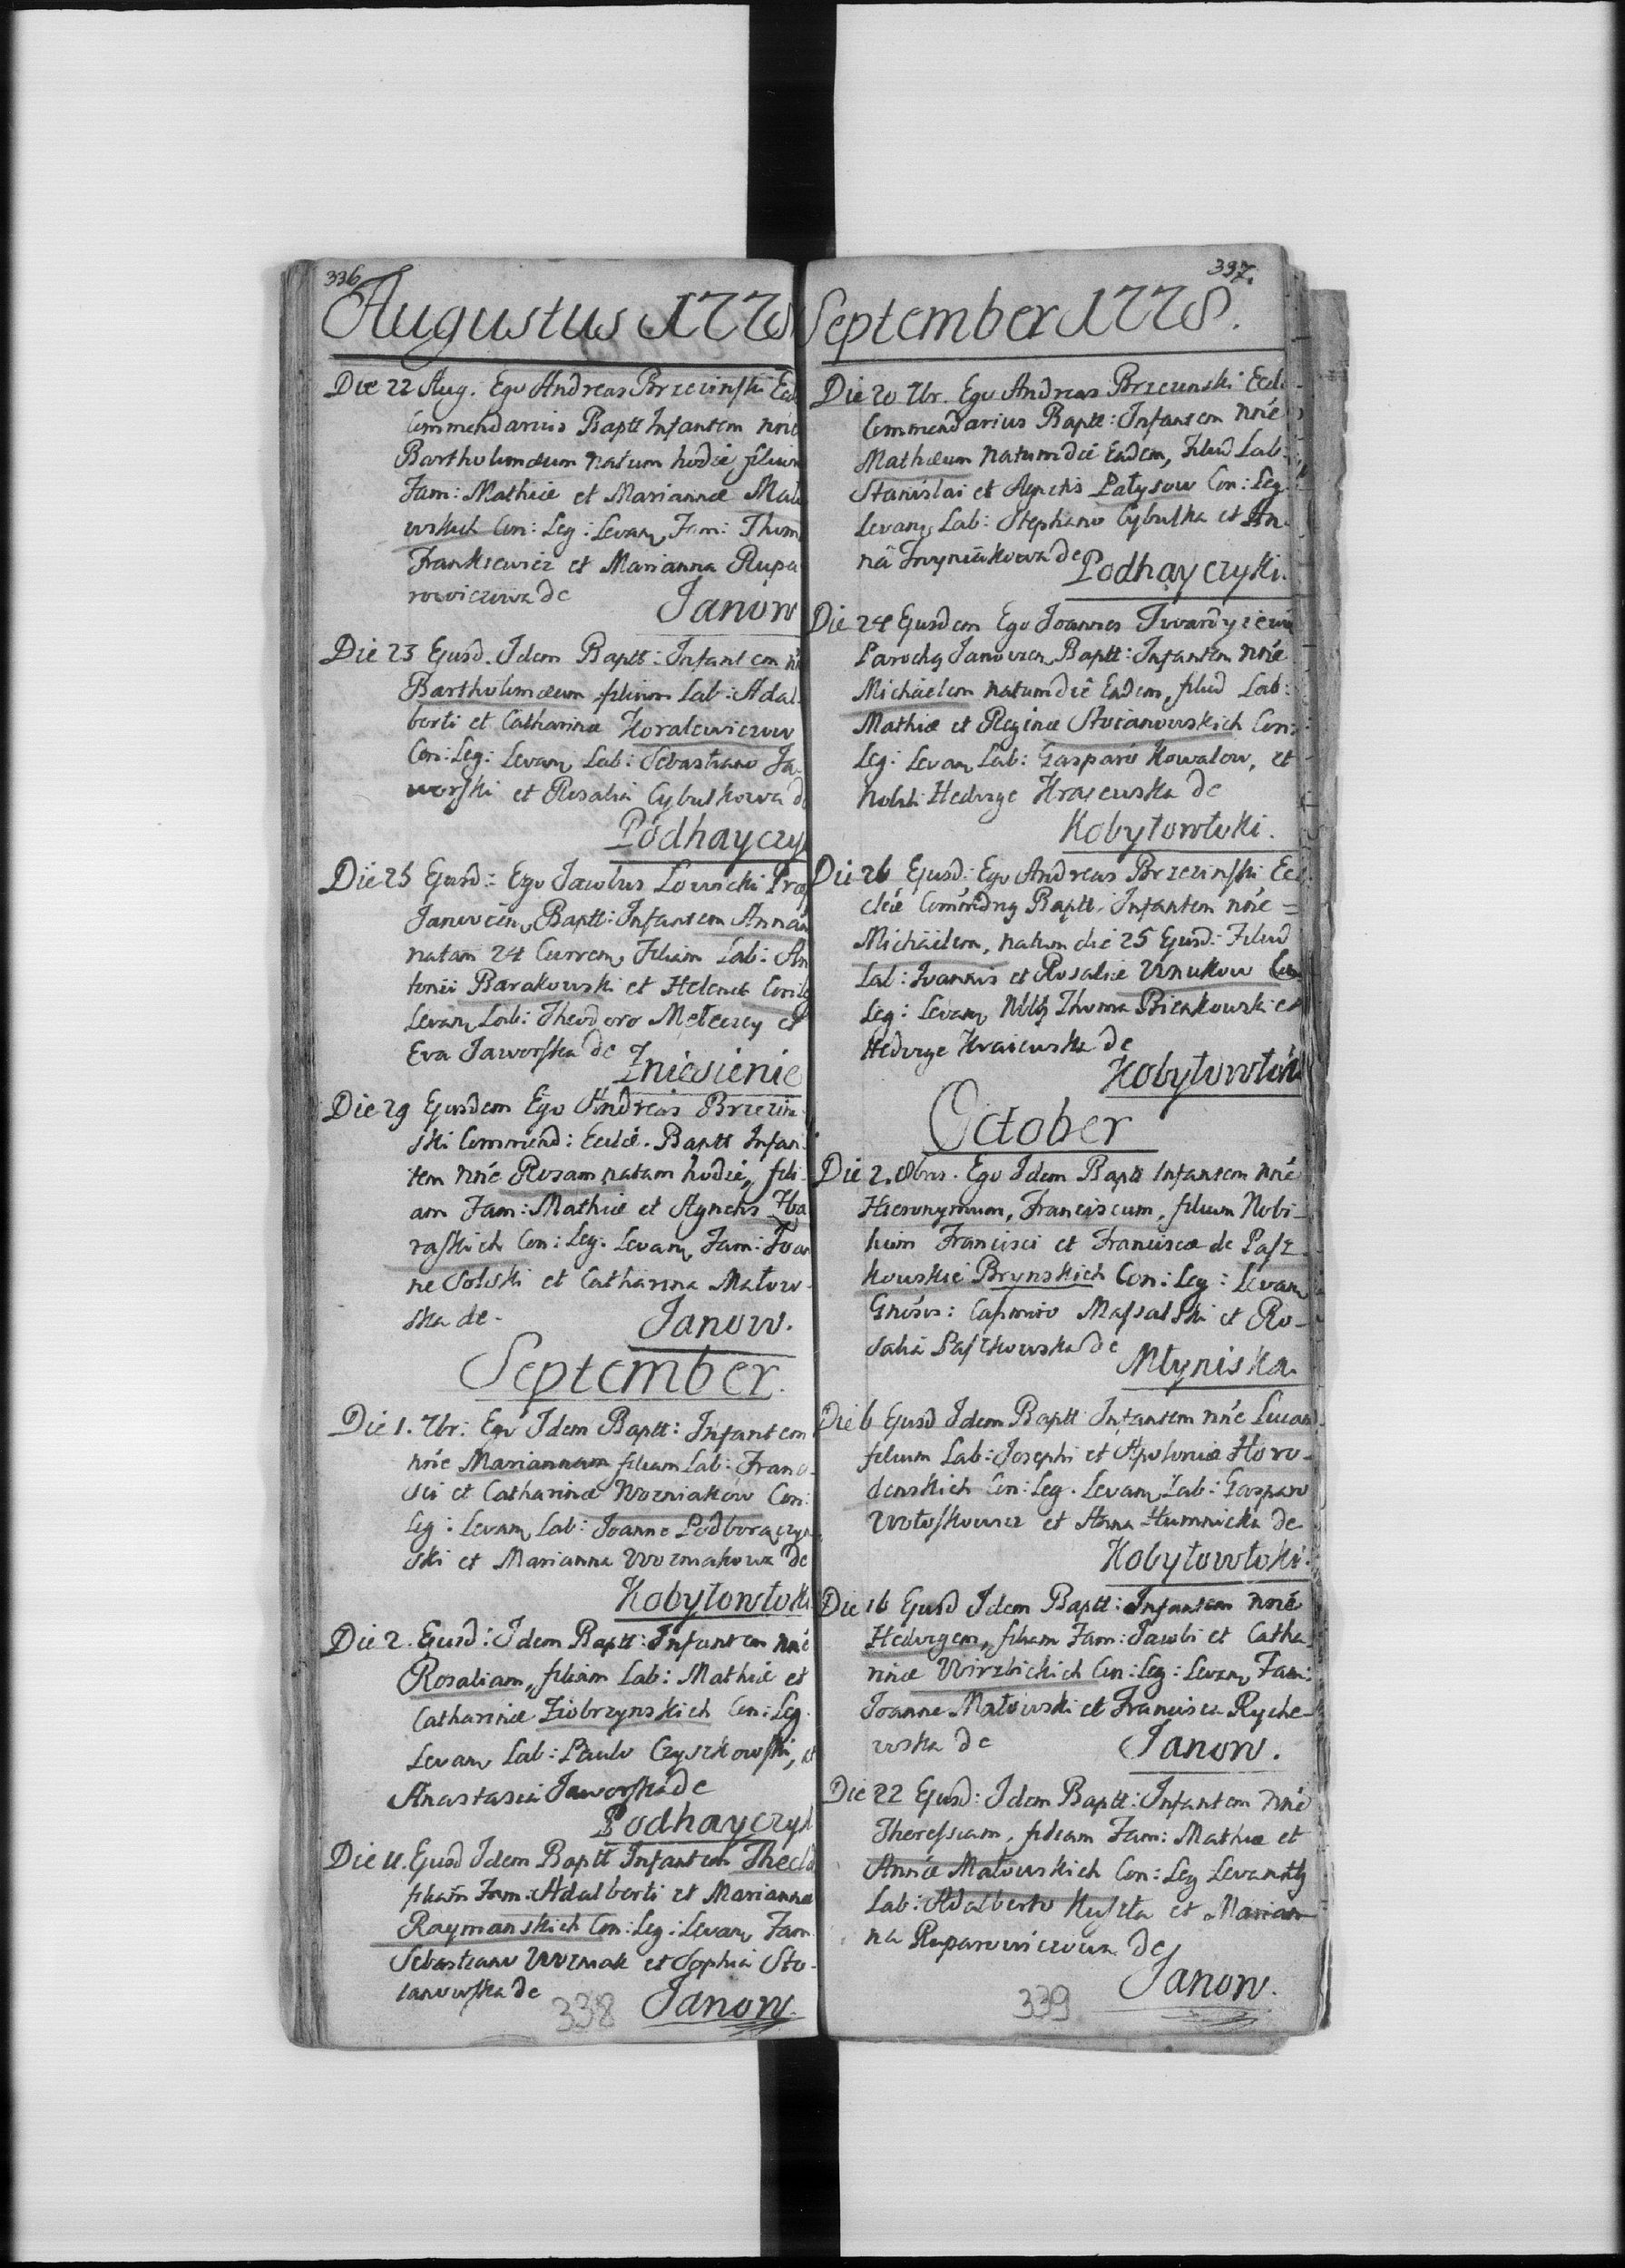 336
Augustus 1778
Die 22 Aug. Ego Andreas Brzezinski Eccl
Commendarius Baptt Infantem nné
Bartholomæum natum hodie, filium
Fam: Mathiæ et Mariannæ Mało
wskich Con: Leg: Levan, Fam: Thom
Frankiewicz et Marianna Rupa
rowiczowa de
Janow
Die 23 Ejusd. Idem Baptt: Infantem
Bartholomæum filium Lab: Adal
berti et Catharinæ Koralewiczow
Con: Leg: Levan Lab: Sebastiano Ja
worski et Rosalia Cybulkowa de
Podhayczy
Die 25 Ejusd: Ego Jacobus Lowicki Præp
Janovien, Baptt: Infantem Annam
natam 24 Curren, Filiam Lab: An
tonii Barakowski et Helenæ Con: leg
Levan Lab: Theodoro Meleczey et
Eva Jaworska de
Zniesienie
Die 29 Ejusdem Ego Andreas Brzezin
ski Commend: Eccliæ. Baptt Infan
tem nné Rosam natam hodie, fili
am Fam: Mathiæ et Agnetis Hba
raskich Con: Leg: Levan, Fam: Joan
ne Solski et Catharina Małow
ska de
Janow.
September.
Die 1. 7br: Ego Idem Baptt: Infantem
nné Mariannam filiam Lab: Franci
sci et Catharinæ Wozniakow Con:
Leg: Levan, Lab: Joanne Podboraczyn
ski et Marianna Wozniakowa de
Kobyłowłoki
Die 2. Ejusd: Idem Baptt: Infantem nné
Rosaliam, filiam Lab: Mathiæ et
Catharinæ Ziobrzynskich Con: Leg.
Levan, Lab: Paulo Czyszkowski, et
Anastasia Jaworska de
Podhayczyk
Die 11. Ejusd Idem Baptt Infantem Thecla
filiam Fam: Adalberti et Mariannæ
Raymanskich Con: Leg: Levan, Fam
Sebastiano Wozniak et Sophia Sto
ianowska de
Janow.
338
337.
September 1778.
Die 20 7br. Ego Andreas Brzezinski Eccl
Commendarius Baptt: Infantem nné
Mathæum natum die Eadem, Filiu Lab:
Stanislai et Agnetis Patysow Con: Leg.
Levan, Lab: Stephano Cybulka et An
na de
Podhayczyki.
Die 24 Ejusdem Ego Joannes
Parochq Janovien, Baptt: Infantem nné
Michäelem natum die Eadem, filiu Lab:
Mathiæ et Reginæ Stoianowskich Con:
Leg: Levan, Lab: Gasparo Kowalow, et
Nobili Hedvige Kraiewska de
Kobyłowłoki.
Die 26 Ejusd: Ego Andreas Brzezinski Ec
cliæ Coméndrq Baptt: Infantem nné
Michäelem, natum die 25 Ejusd: Filiu
Lab: Joannis et Rosaliæ Wnukow Con
Leg: Levan, Nblq Thoma Bienkowski et
Hedvige Kraiewska de
Kobyłowłoki
October
Die 2. 8bris. Ego Idem Baptt Infantem nné
Hieronymum, Franciscum, filium Nobi
lium Francisci et Franciscæ de Pasz
kowskie Brynskich Con: Leg: Levan
Gnósis: Casimiro Massalski et Ro
salia Paszkowska de
Młyniska.
Die 6 Ejusd Idem Baptt Infantem nné Lucam
filium Lab: Josephi et Apoloniæ Horo
denskich Con: Leg. Levan, Lab: Gasparo
Wołoszkowicz et Anna Humnicka de
Kobyłowłoki.
Die 16 Ejusd Idem Baptt: Infantem nné
Hedvigem, filiam Fam: Jacobi et Catha
rinæ Wirzbickich Con: Leg: Levan, Fam:
Joanne Małowski et Francisca Ryche
wska de
Janow.
Die 22 Ejusd: Idem Baptt: Infantem nné
Theressiam, filiam Fam: Mathiæ et
Annæ Małowskich Con: Leg Levantbq
Lab: Adalberto Kuszta et Marian
na Ruparowiczowa de
Janow.
339